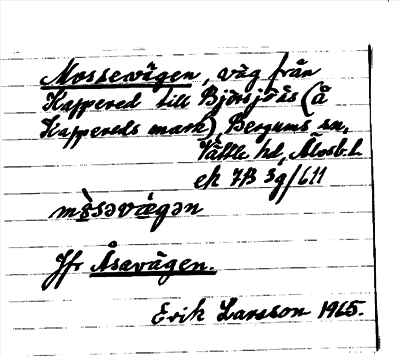 Mossevägen, väg från
Kappered till Björsjöås (å
Kappereds mark), Bergums sn,
Vättle hd, Älvsb. l.
ek 7B 3g/611
mɵ̀səvæ̀gən
Jfr Åsavägen.
Erik Larsson 1965.